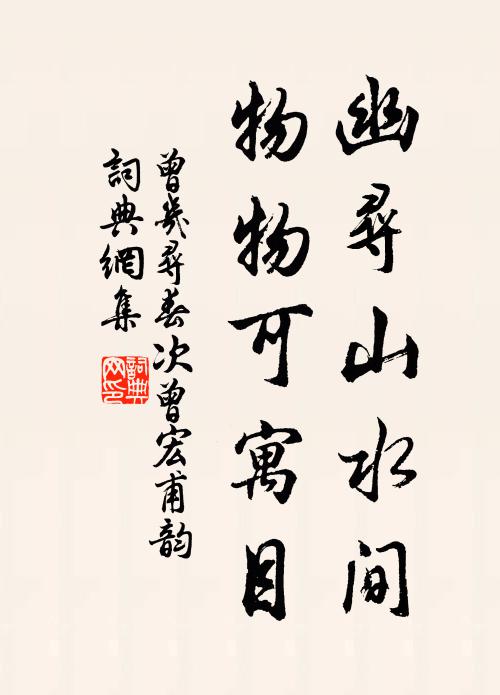 幽尋山水间
物物可寓目
曾幾尋春次曾宏甫韵
詞典網集
詞典
网印